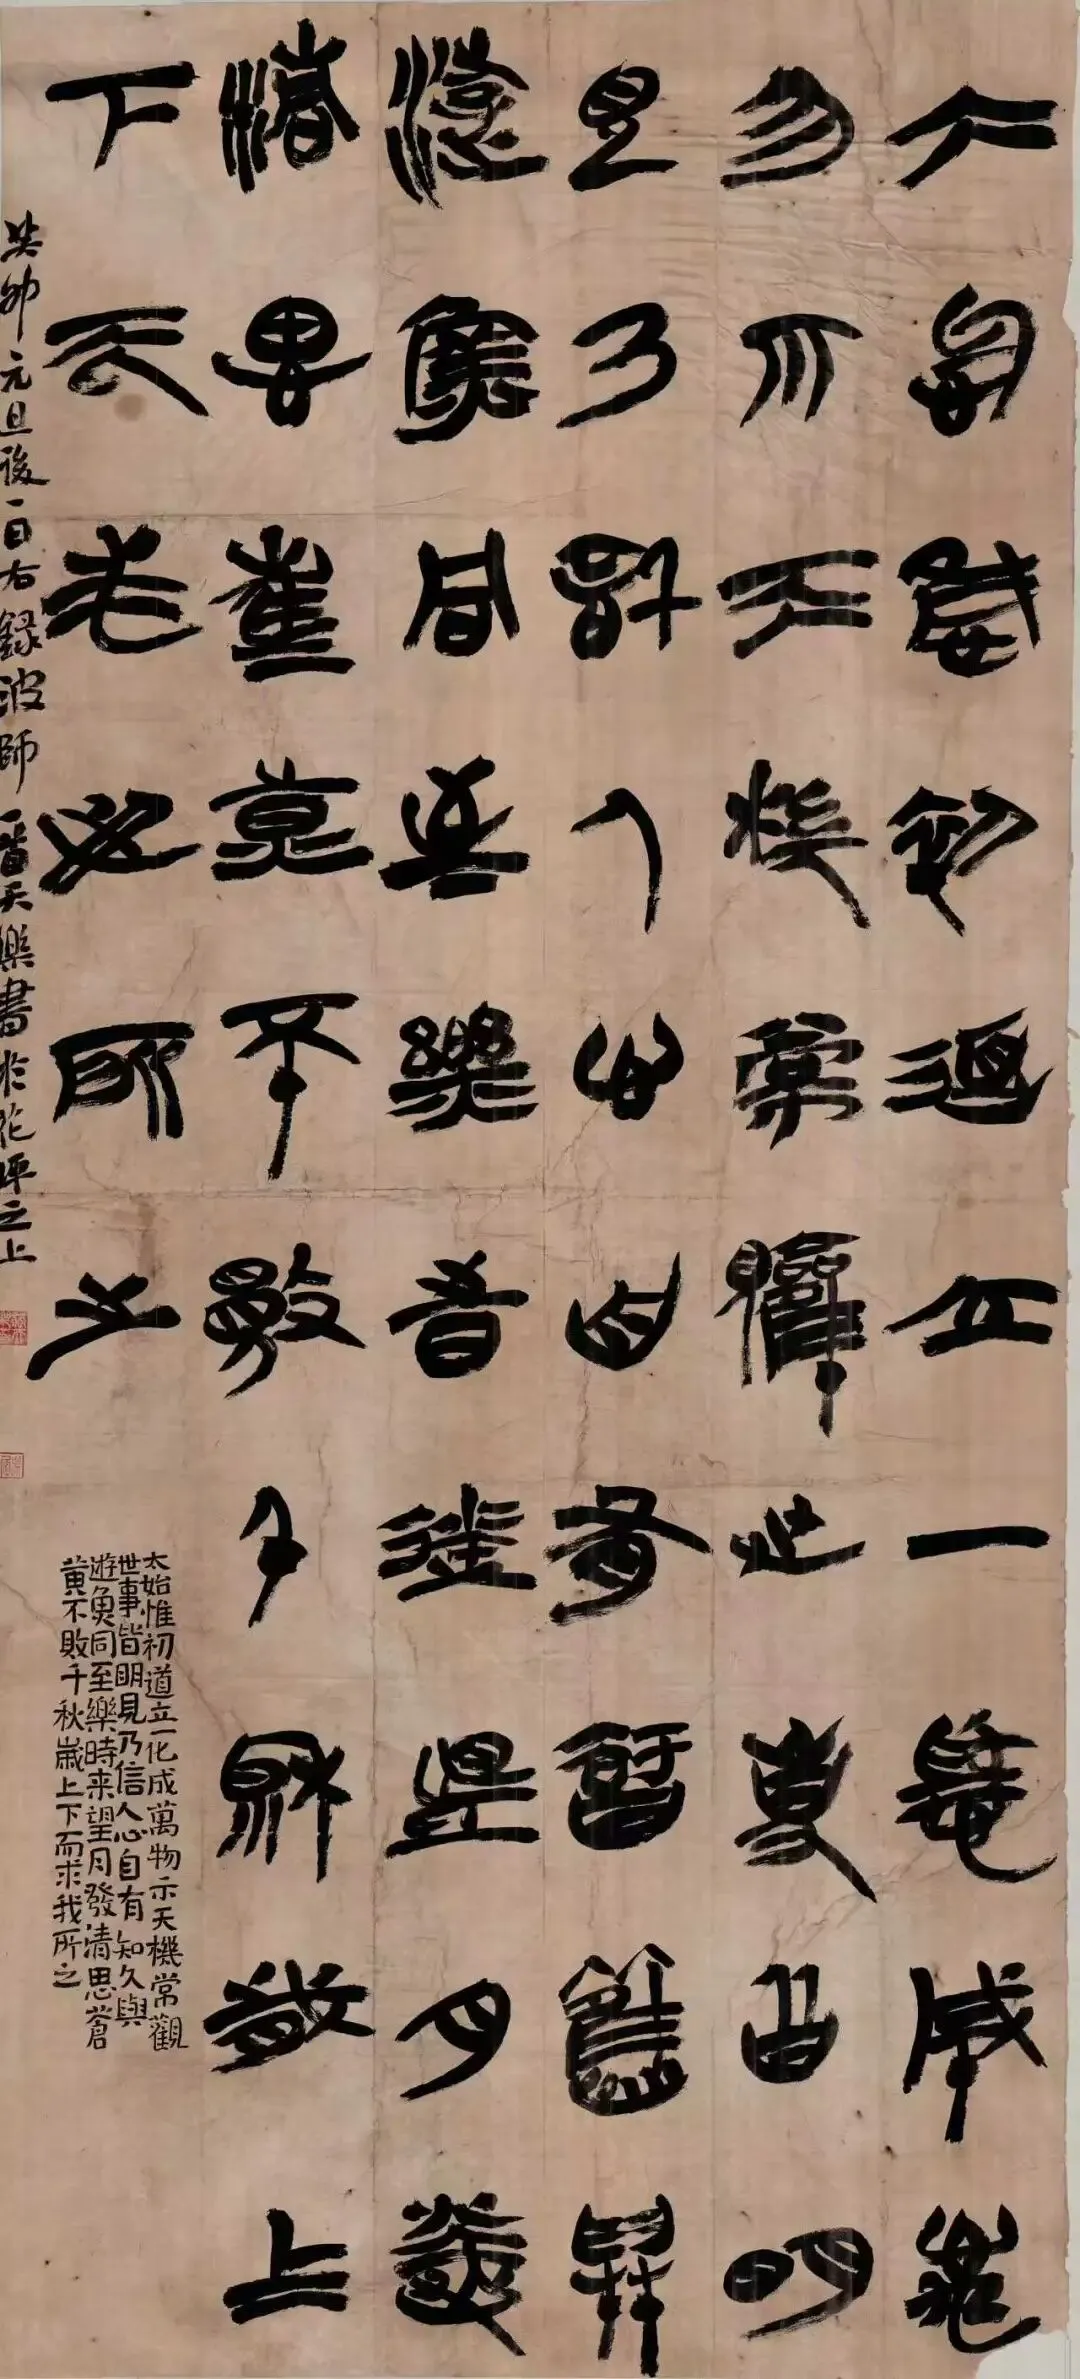 太始惟初道立一化成萬
物示天機常觀世事皆明
見乃信人心自有知久與
遊魚同至樂時来望月發
清思蒼黄不敗千秋嵗上
下而求我所之
癸卯元旦後一日右録波師一首天樂書於花坪之上
太始惟初道立一化成萬物示天機常觀
世事皆明見乃信人心自有知久與
遊魚同至樂時来望月發清思蒼
黄不敗千秋嵗上下而求我所之